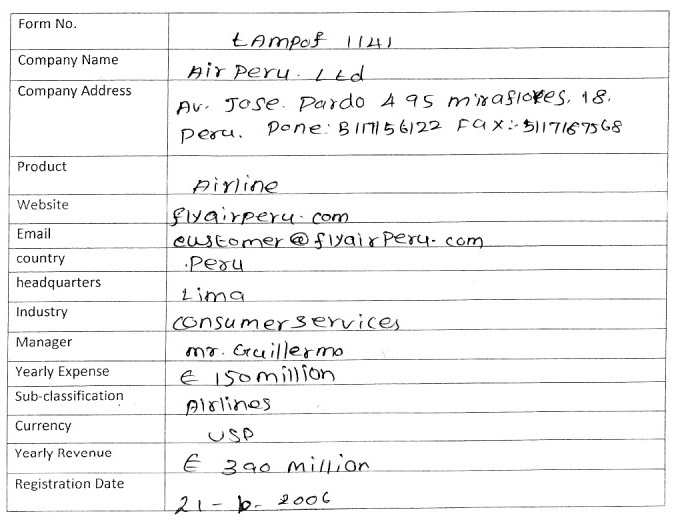 Form No.
tAmpof 1141
Company Name
Air Peru. Ltd
Company Address
Av. Jose. Pardo 495 miraflores, 18.
Peru. Pone: 5117156122 Fax:- 5117167568
Product
Airline
Website
flyairperu.com
Email
customer@flyairperu.com
country
.Peru
headquarters
Lima
Industry
consumer services
Manager
mr. Guillermo
Yearly Expense
€ 150 million
Sub-classification
Airlines
Currency
USD
Yearly Revenue
€ 390 million
Registration Date
21 - - 2006